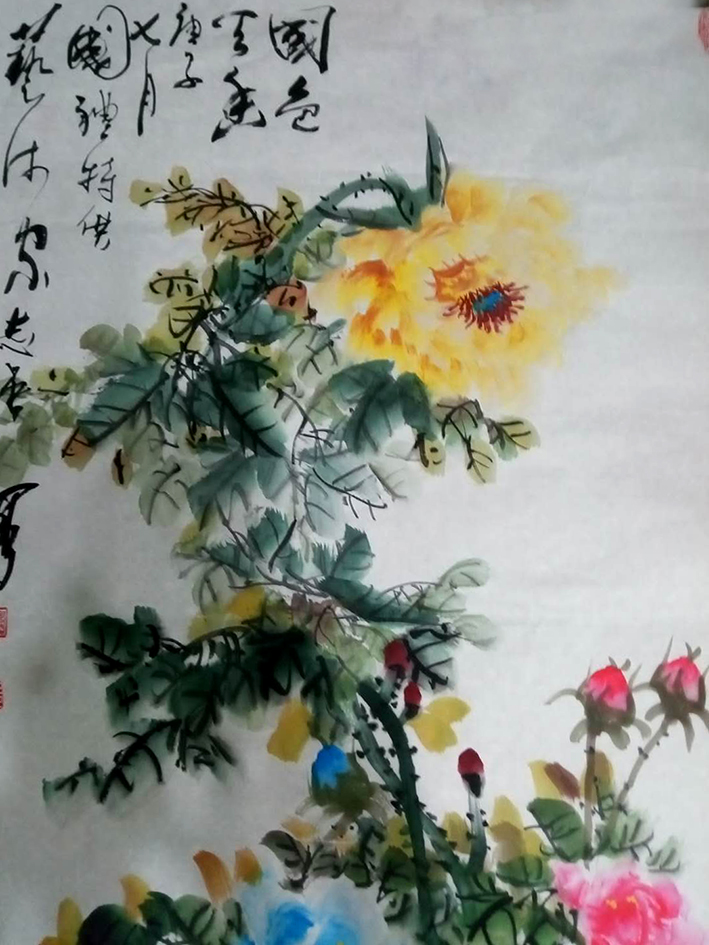 國色
天香
庚子
七月
國禮特供
藝术家志杏